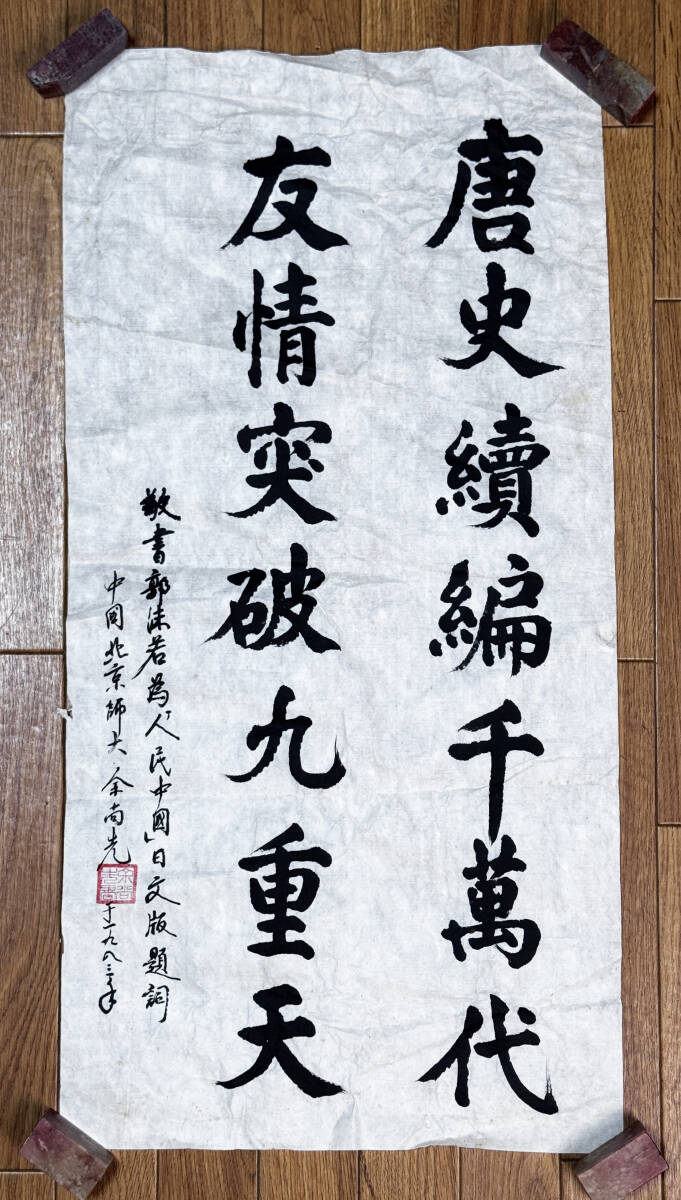 唐史續編千萬代
友情突破九重天
敬書郭沫若為「人民中國」日文版題詞
中国北京師大 余尚光
于一九八三年